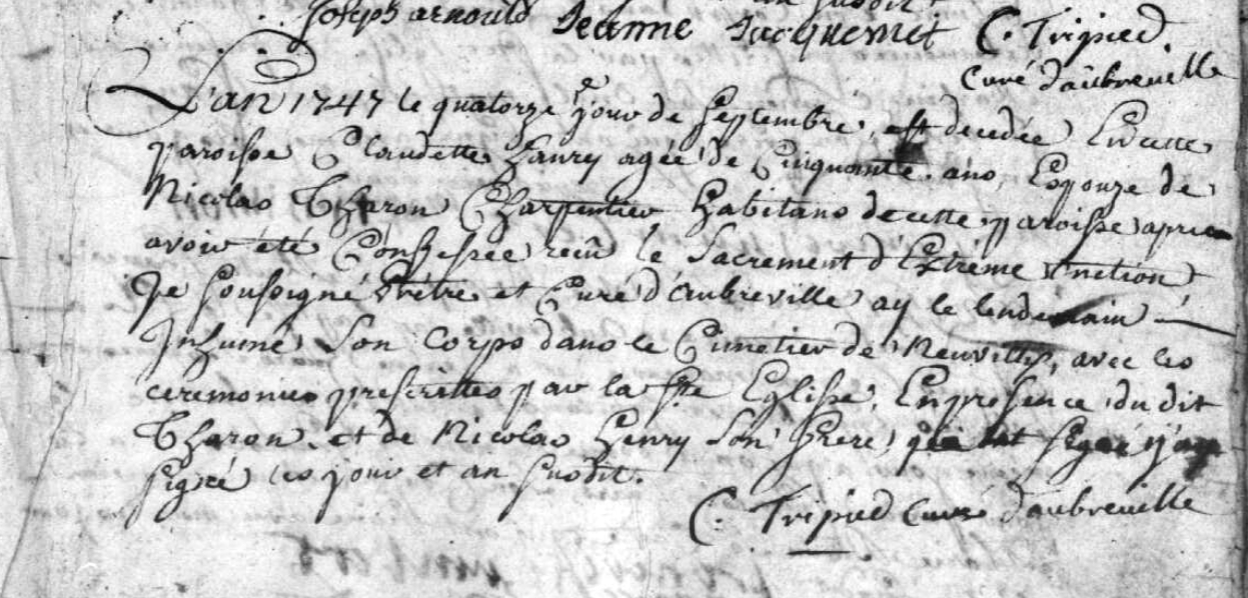 Joseph arnould Jeanne Jacquemet C. Tripied.
curé d'aubreuille
L'an 1747 le quatorze e jour de septembre, est decedée En cette
paroisse Claudette henry agée de Cinquante ans, Epouze de
Nicolas Tharon Charpentier habitans de cette paroisse apres
avoir été Confessée reçu le Sacrement d'Extrême onction
Je soussigné Prêtre et Curé d'Aubreville ay le lendemain
Inhumé son corps dans le Cimetier de Neuvilly, avec les
ceremonies prescrittes par la ste Eglisse, En presence du dit
Tharon et de Nicolas henry son frere, signé
signé les jour et an susdit.
C. Tripied curé d'aubreuille